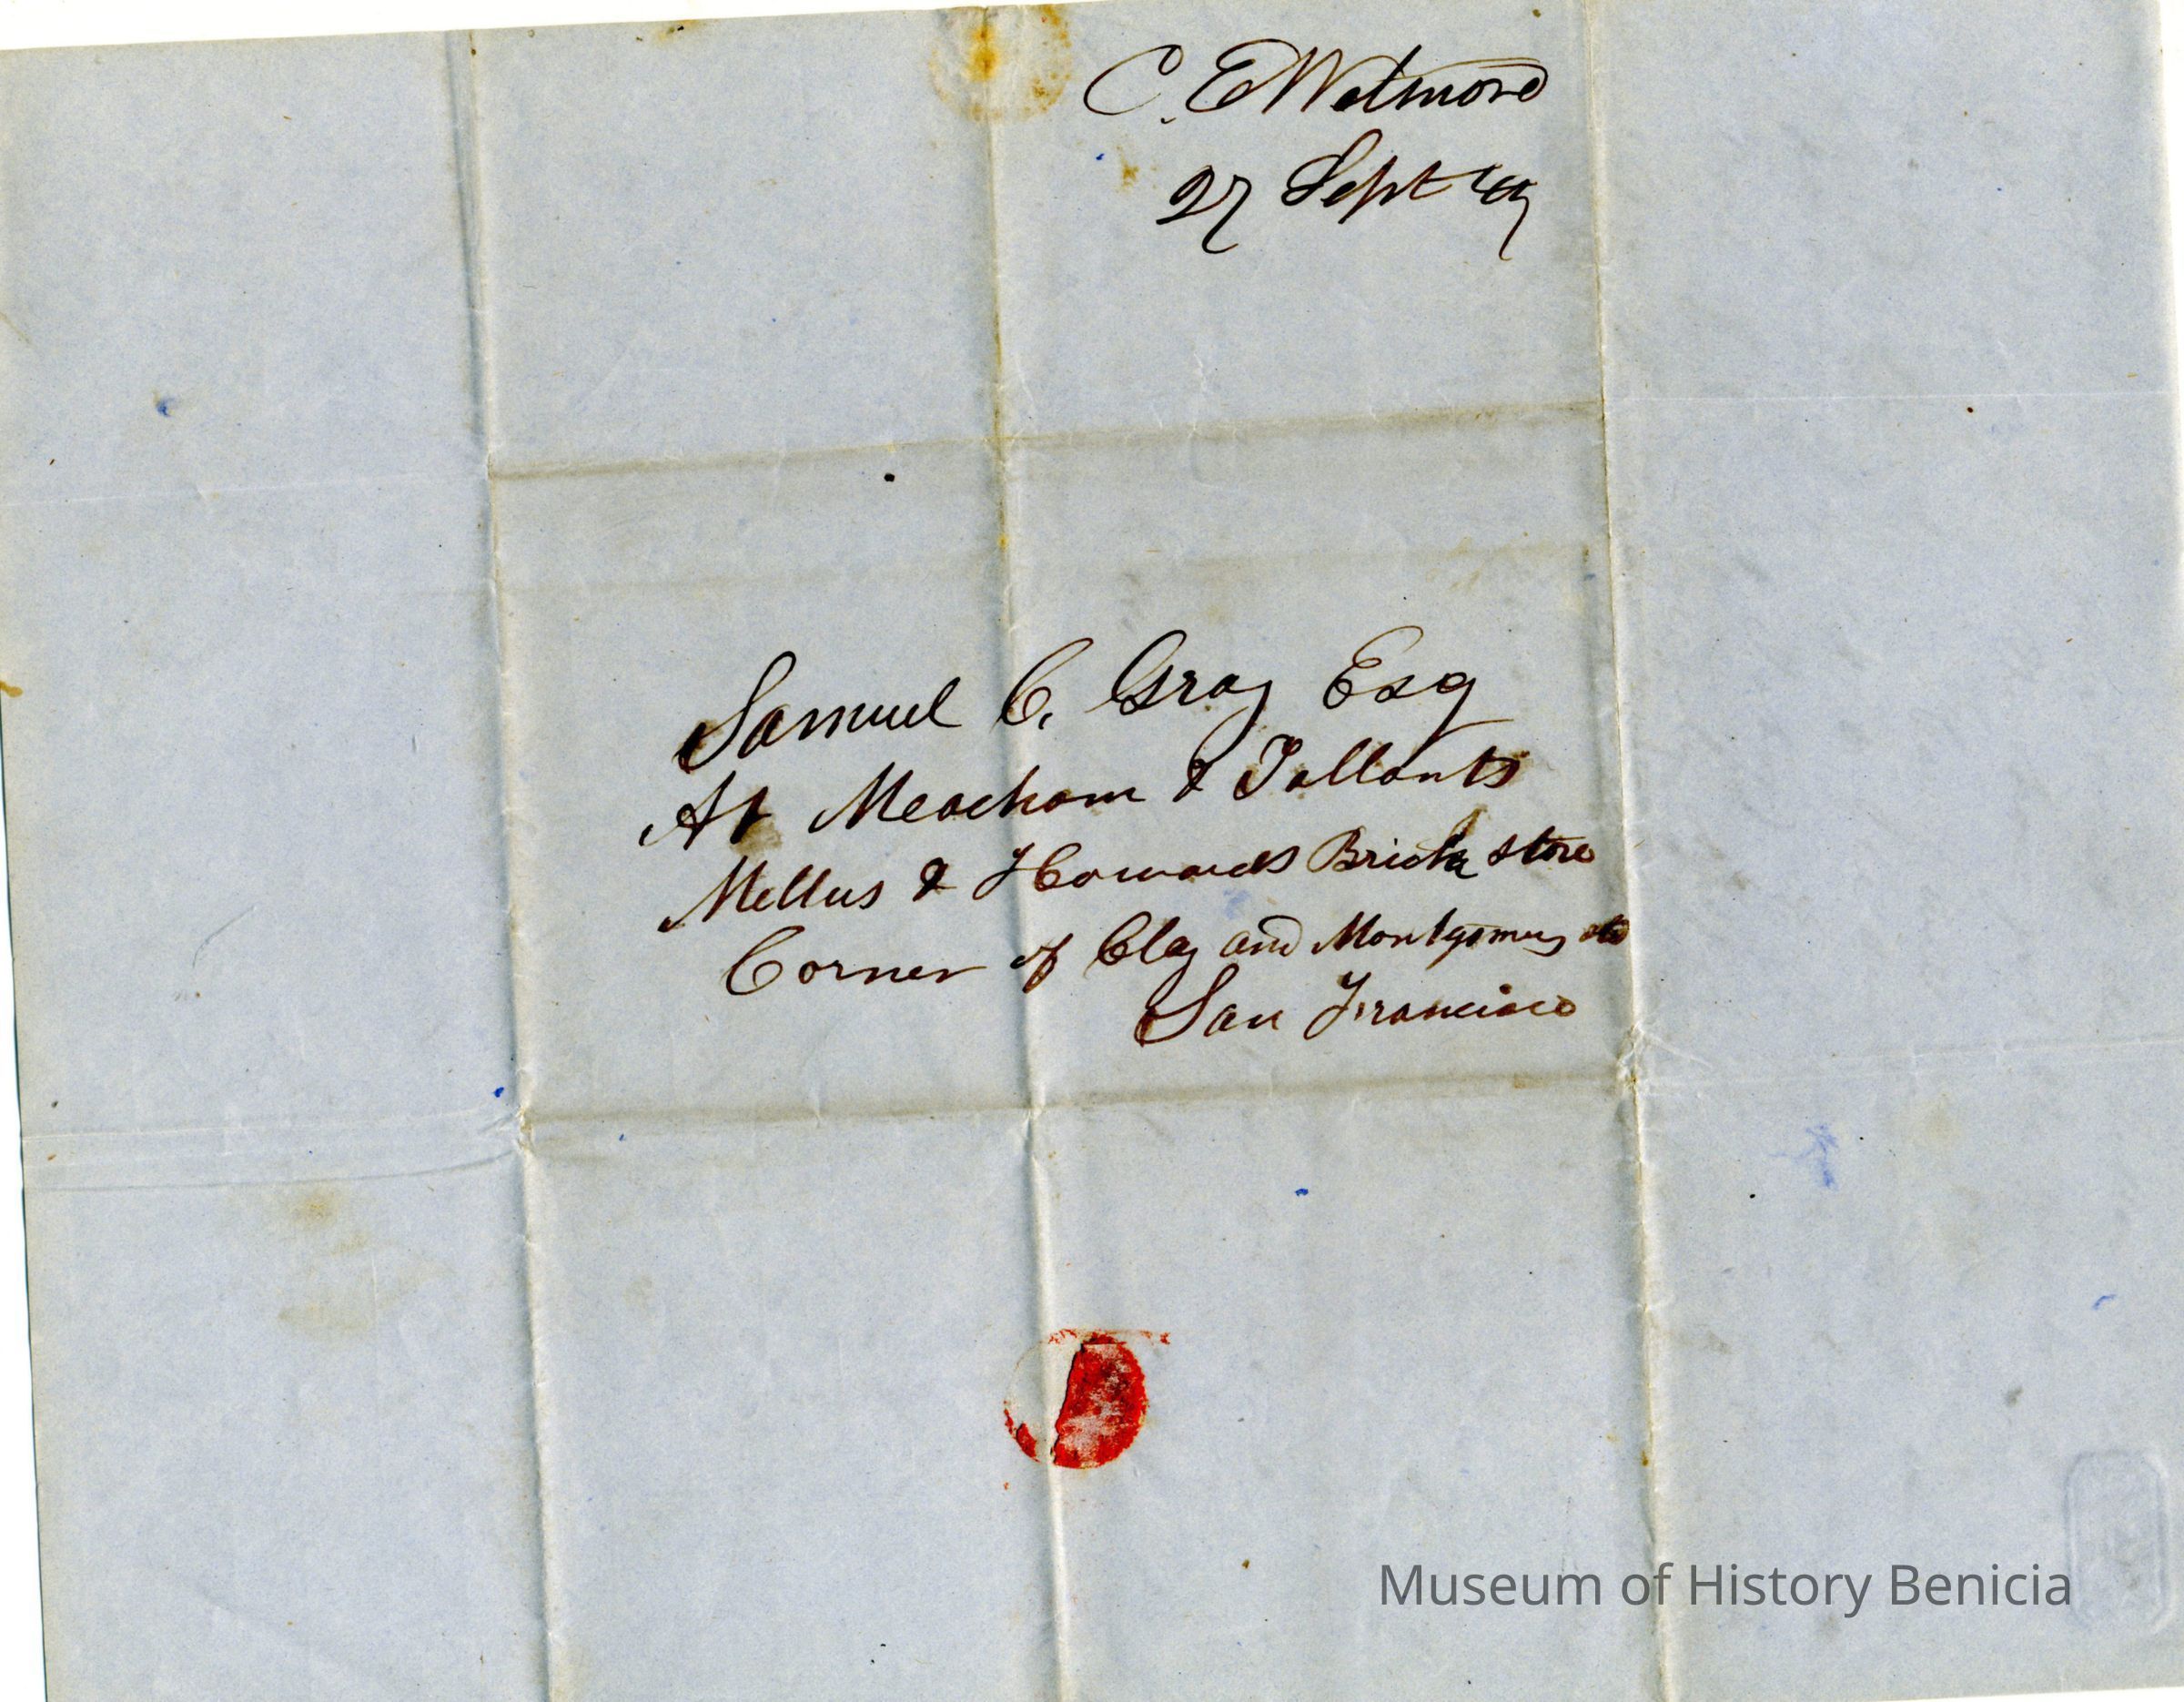 C. E Wetmore
27 Sept 49
Samuel C. Gray Esq
At Meacham & Tallants
Mellus & Howards Brick store
Corner of Clay and Montgomery sts
San Francisco
Museum of History Benicia